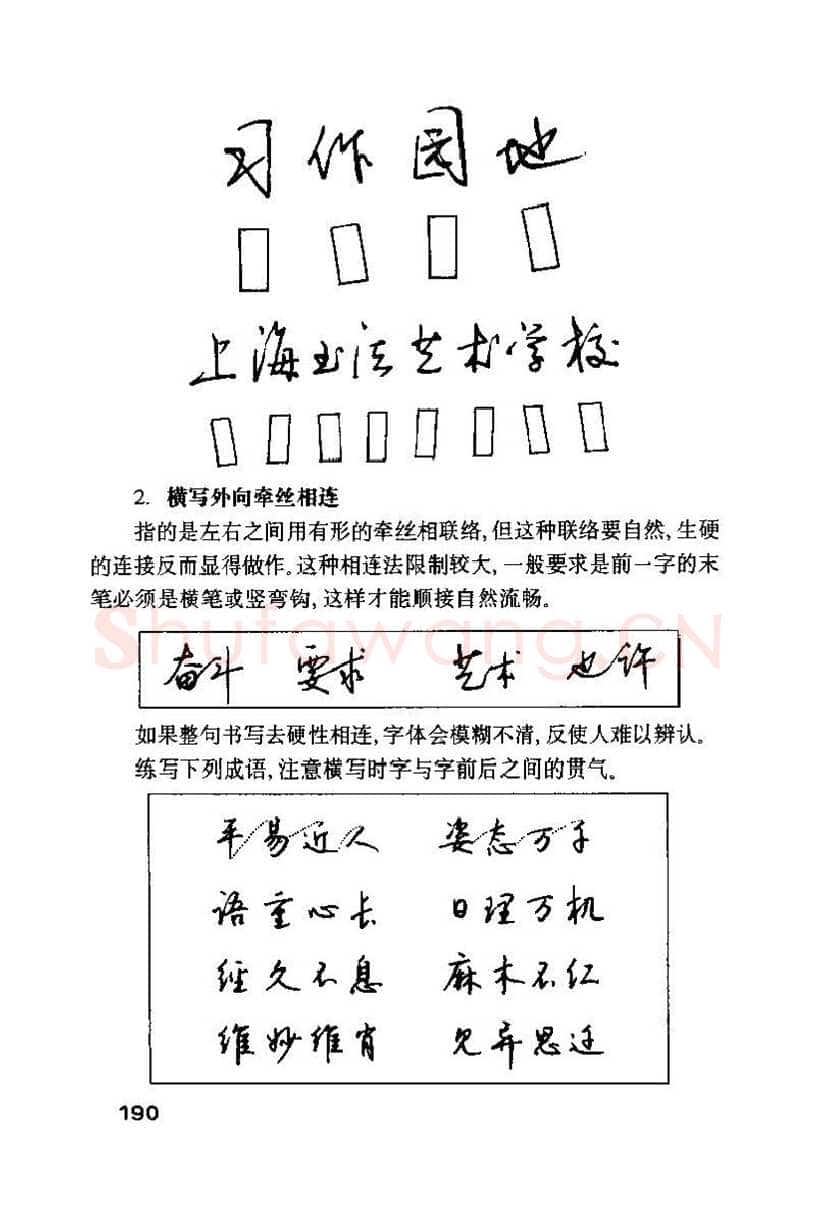 习作园地
上海书法艺术学校
2. 横写外向牵丝相连
指的是左右之间用有形的牵丝相联络,但这种联络要自然,生硬
的连接反而显得做作。这种相连法限制较大,一般要求是前一字的末
笔必须是横笔或竖弯钩,这样才能顺接自然流畅。
Shufawang.CN
奋斗 要求 艺术 也许
如果整句书写去硬性相连,字体会模糊不清,反使人难以辨认。
练写下列成语,注意横写时字与字前后之间的贯气。
平易近人 姿态万千
语重心长 日理万机
经久不息 麻木不仁
维妙维肖 见异思迁
190